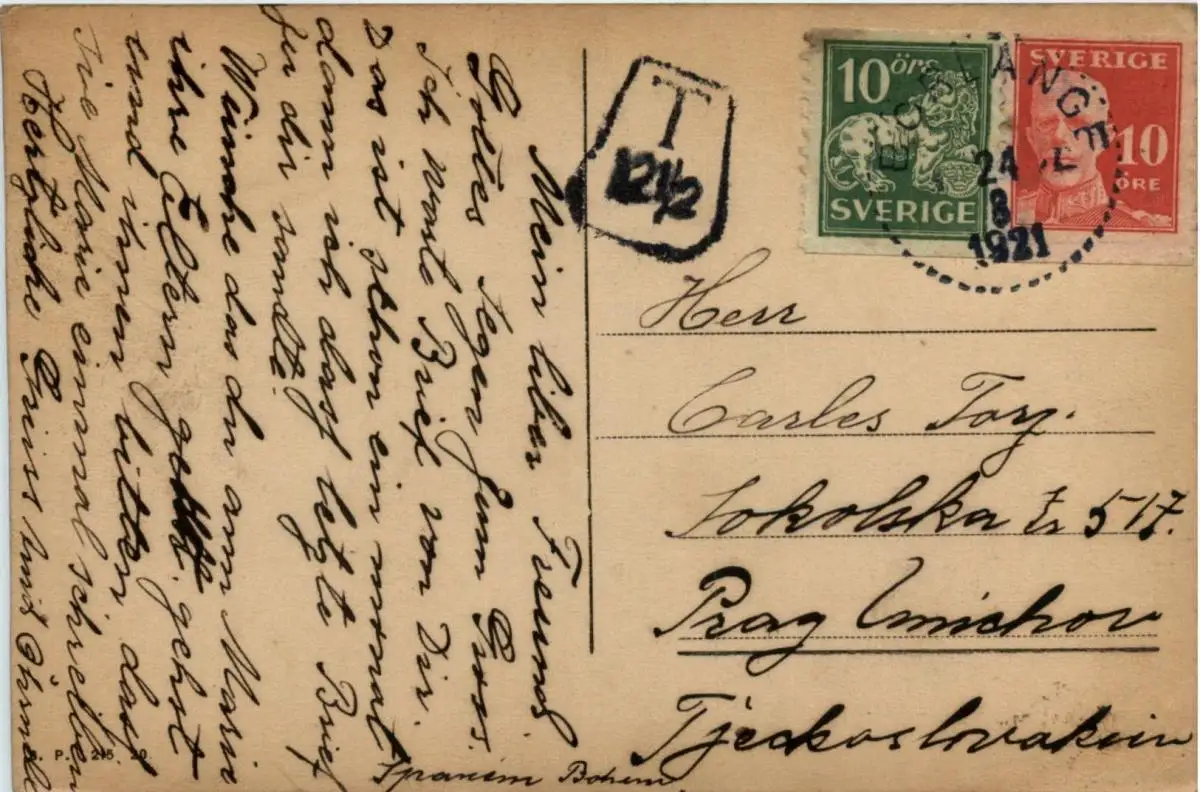 Mein liber Freund
Gottes Segen zum Gruss.
Ich warte Brief von Dir.
Das ist schon ein monat
dann ich dast letzte Brief
für dir sandte.
Wünsche das du am Marie
ihre Eltern gehst
und ihnen bitten dast
Sie Marie einmal schreiben
Hertzliche Griss und
T
12½
10 öre
SVERIGE
SVERIGE
10
ÖRE
BORLÄNGE
24
8
1921
Herr
Carles Torz.
Sokolska 517.
Prag Smichov
Tjeckoslovakien
Bohem